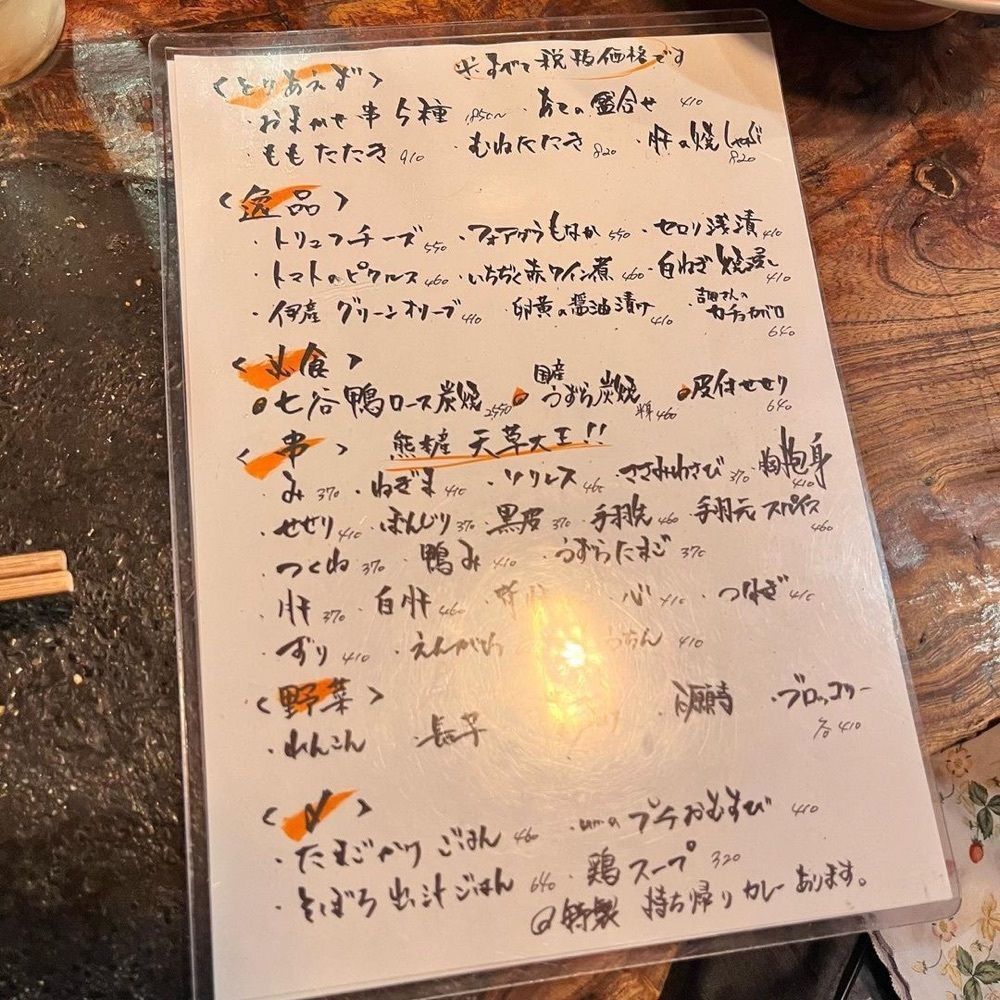 〈とりあえず〉 ※すべて税抜価格です
・おまかせ串5種 1850〜 ・あての盛合せ 410
・ももたたき 910 ・むねたたき 820 ・肝の焼しゃぶ 820
〈逸品〉
・トリュフチーズ 550 ・フォアグラもなか 550 ・セロリ浅漬 410
・トマトのピクルス 460 ・いちぢく赤ワイン煮 460 ・白ねぎ焼浸し 410
・伊産グリーンオリーブ 410 ・卵黄の醤油漬け 410 ・吉田さんのカチョカバロ 640
〈必食〉
七谷鴨ロース炭焼 2550 国産うずら炭焼 半身 460 皮付せせり 640
〈串〉 熊本産 天草大王!!
・み 370 ・ねぎま 410 ・ソリレス 460 ・ささみわさび 370 ・胸抱身 410
・せせり 410 ・ぼんじり 370 ・黒皮 370 ・手羽先 460 ・手羽元スパイス 460
・つくね 370 ・鴨み 410 ・うずらたまご 370
・肝 370 ・白肝 460 ・心 410 ・つなぎ 410
・ずり 410 ・えんがわ ちん 410
〈野菜〉
・れんこん ・長芋 ・ブロッコリー 各410
〈〆〉
・たまごかけごはん 460 ・umaプチおむすび 410
・そぼろ出汁ごはん 640 ・鶏スープ 320
@特製 持ち帰りカレーあります。